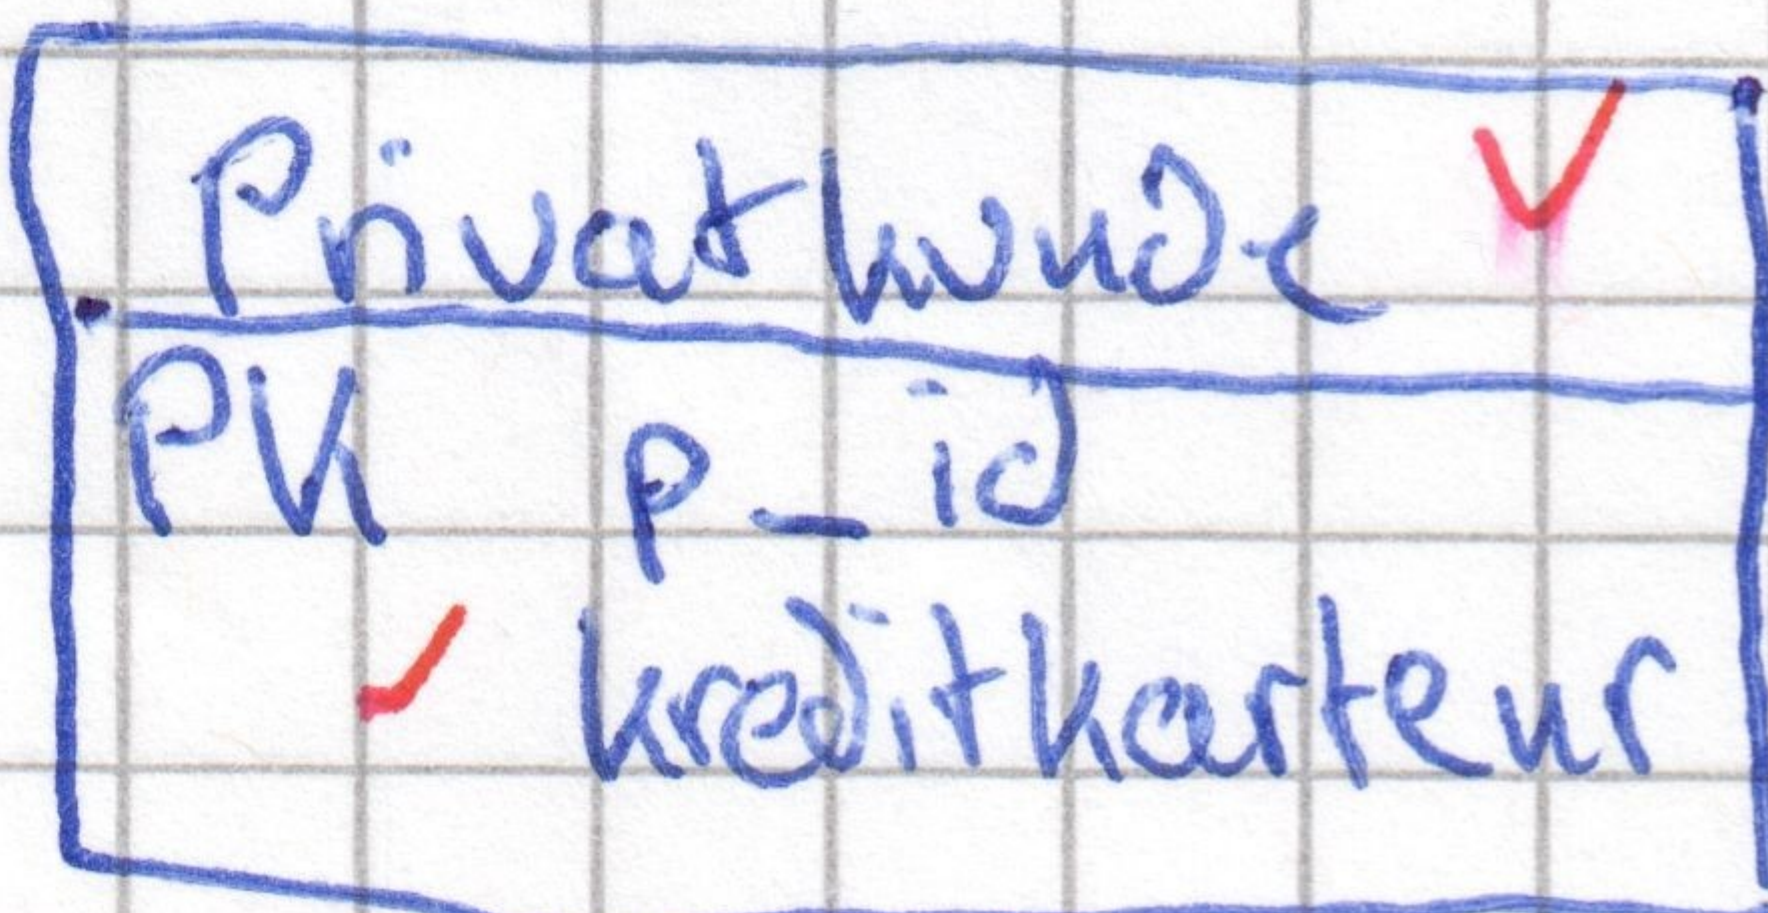 Privatkunde
PK p_id
kreditkartenr